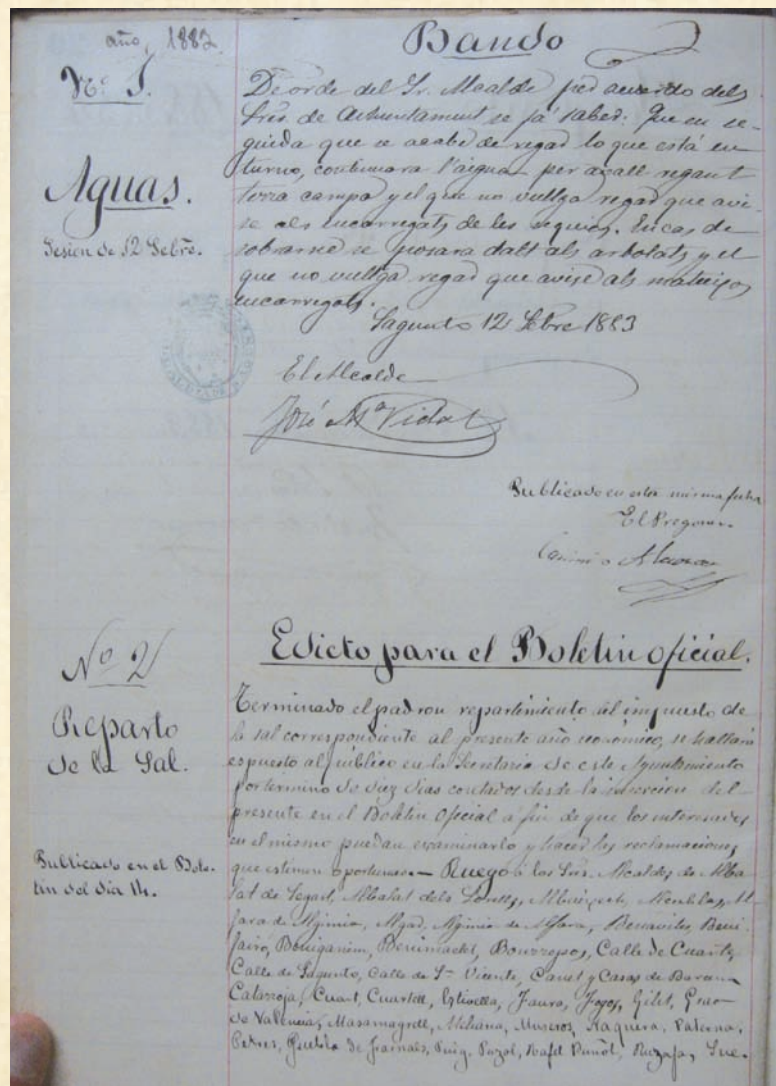 año, 1882
Bando
Nº 1.
Aguas.
Sesion de 12 Sebre.
De orde del Sr. Alcalde per acuerdo dels
Srés de Achuntament se fá saber: Que en se-
guida que se acabe de regar lo que está en
turno, continuara l'aigua per avall regant
terra campa y el que no vullga regar que avi-
se als encarregats de les sequies. En cas de
sobrarne se posara dalt als arbolats y el
que no vullga regar que avise als mateixos
encarregats.
Sagunto 12 Sebre 1883
El Alcalde
José Mª Vidal
Publicado en esta misma fecha
El Pregonero
Nº 2
Reparto
de la Sal.
Publicado en el Bole-
tin del dia 14.
Edicto para el Boletin oficial.
Terminado el padron repartimiento del impuesto de
la sal correspondiente al presente año económico, se hallará
espuesto al público en la Secretaria de este Ayuntamiento
por termino de diez dias contados desde la insercion del
presente en el Boletin Oficial á fin de que los interesados
en el mismo puedan examinarlo y hacer las reclamaciones
que estimen oportunas.— Ruego á los Sres. Alcaldes de Alba-
lat de Segart, Albalat dels Sorells, Albuixech, Alcublas, Al-
fara de Algimia, Algar, Algimia de Alfara, Benavites, Beni-
fairó, Beniganim, Benimaclet, Bonrepos, Calle de Cuarte,
Calle de Sagunto, Calle de Sn Vicente, Canet y Casas de Barcena
Catarroja, Cuart, Cuartell, Estivella, Faura, Foyos, Gilet, Grao
de Valencia, Masamagrell, Meliana, Museros, Naquera, Paterna,
Petres, Puebla de Farnals, Puig, Puzol, Rafel Buñol, Ruzafa, Sue-